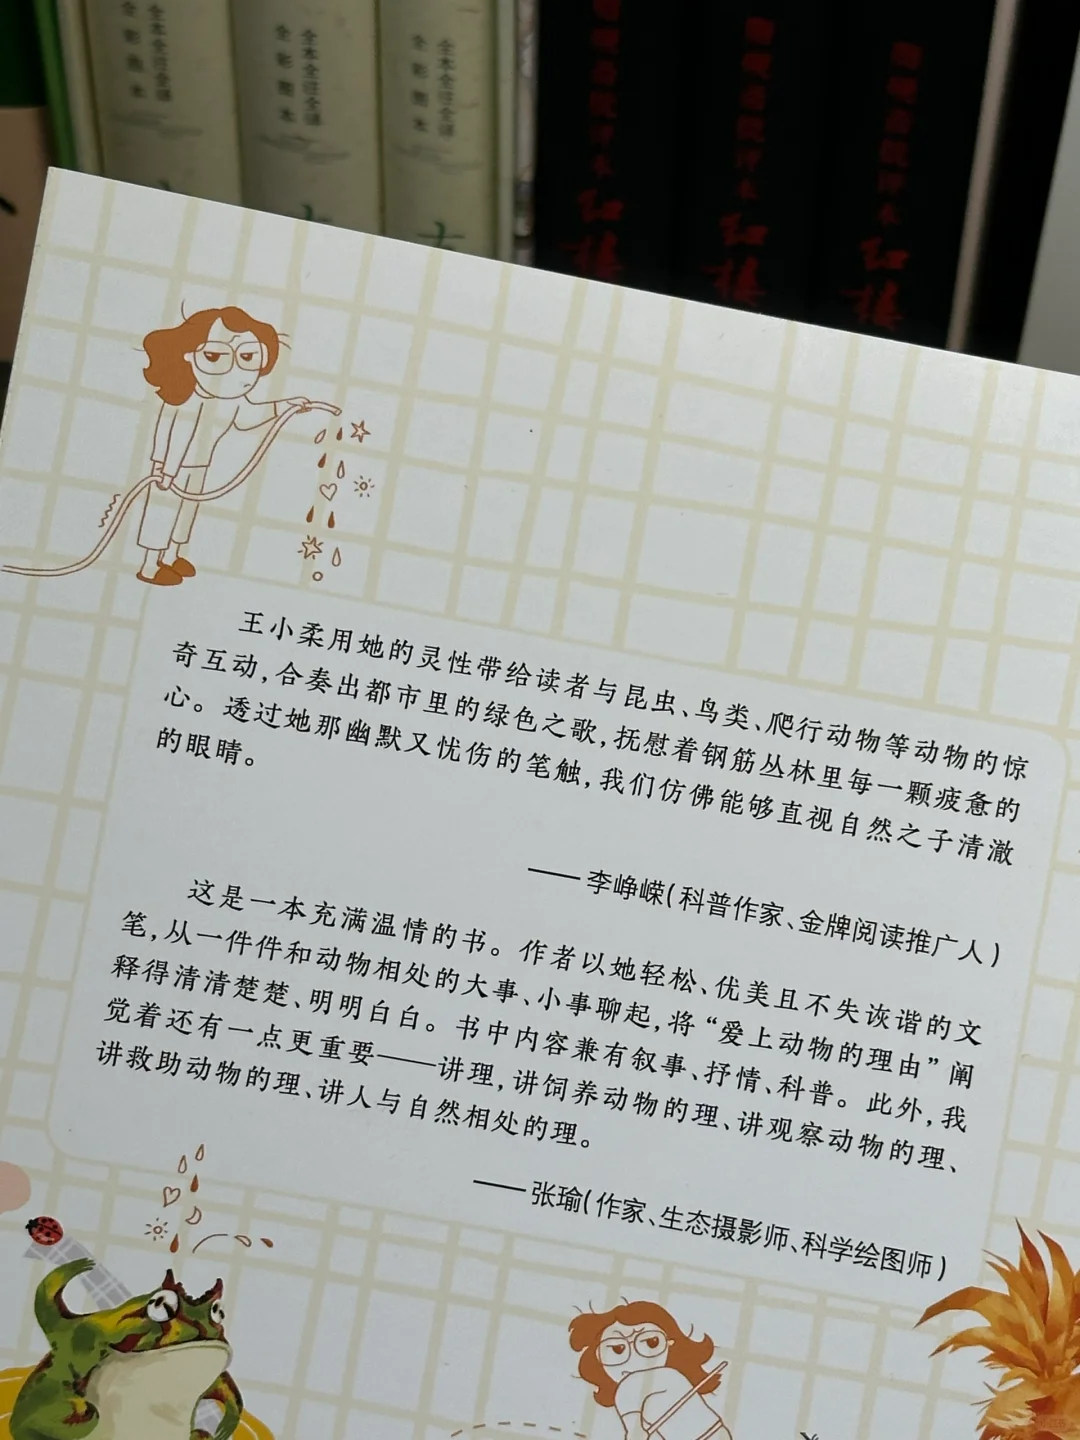 全本全注全译
全彩图本
全本全注全译
全彩图本
全本全注全译
全彩图本
红楼
红楼
红楼
王小柔用她的灵性带给读者与昆虫、鸟类、爬行动物等动物的惊
奇互动,合奏出都市里的绿色之歌,抚慰着钢筋丛林里每一颗疲惫的
心。透过她那幽默又忧伤的笔触,我们仿佛能够直视自然之子清澈
的眼睛。
——李峥嵘(科普作家、金牌阅读推广人)
这是一本充满温情的书。作者以她轻松、优美且不失诙谐的文
笔,从一件件和动物相处的大事、小事聊起,将“爱上动物的理由”阐
释得清清楚楚、明明白白。书中内容兼有叙事、抒情、科普。此外,我
觉着还有一点更重要——讲理,讲饲养动物的理、讲观察动物的理、
讲救助动物的理、讲人与自然相处的理。
——张瑜(作家、生态摄影师、科学绘图师)